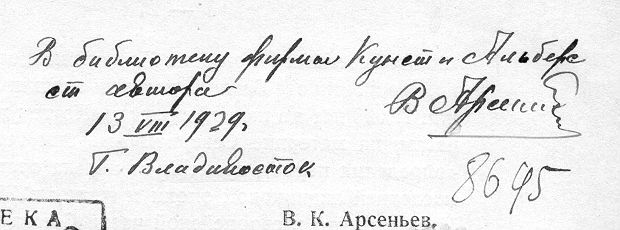 В библиотеку фирмы Кунст и Альберс
от автора
13 VIII 1929 г.
В Арсеньев
Г. Владивосток
8695
ЕКА
В. К. Арсеньев.